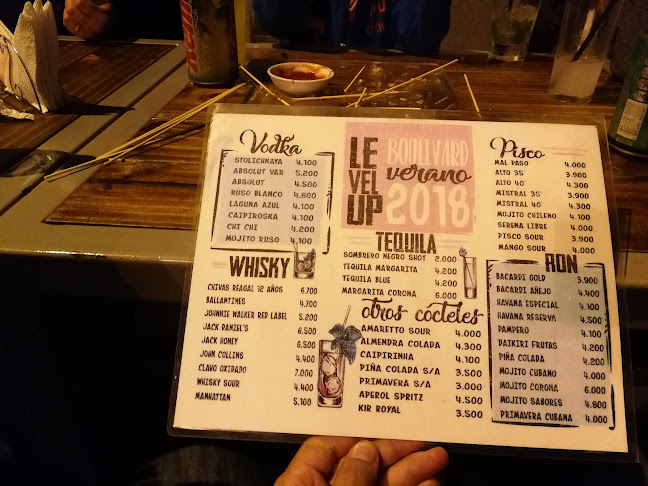 Vodka
STOLICHNAYA 4.100
ABSOLUT VAR 5.200
ABSOLUT 4.500
RUSO BLANCO 4.600
LAGUNA AZUL 4.100
CAIPIROSKA 4.100
CHI CHI 4.200
MOJITO RUSO 4.100
WHISKY
CHIVAS REAGAL 12 AÑOS 6.700
BALLANTINES 4.700
JOHNNIE WALKER RED LABEL 5.200
JACK DANIEL'S 6.500
JACK HONEY 6.500
JOHN COLLINS 4.400
CLAVO OXIDADO 7.000
WHISKY SOUR 4.400
MANHATTAN 5.100
LE
VEL
UP
BOULEVARD
verano
2018
TEQUILA
SOMBRERO NEGRO SHOT 2.000
TEQUILA MARGARITA 4.200
TEQUILA BLUE 4.200
MARGARITA CORONA 6.000
otros cócteles
AMARETTO SOUR 4.000
ALMENDRA COLADA 4.300
CAIPIRINHA 4.100
PIÑA COLADA S/A 3.500
PRIMAVERA S/A 3.000
APEROL SPRITZ 4.500
KIR ROYAL 3.500
Pisco
MAL PASO 4.000
ALTO 35° 3.900
ALTO 40° 4.300
MISTRAL 35° 3.900
MISTRAL 40° 4.300
MOJITO CHILENO 4.100
SERENA LIBRE 4.000
PISCO SOUR 3.900
MANGO SOUR 4.000
RON
BACARDI GOLD 3.900
BACARDI AÑEJO 4.400
HAVANA ESPECIAL 4.100
HAVANA RESERVA 4.500
PAMPERO 4.100
DAIKIRI FRUTAS 4.200
PIÑA COLADA 4.200
MOJITO CUBANO 4.000
MOJITO CORONA 6.000
MOJITO SABORES 4.600
PRIMAVERA CUBANA 4.000